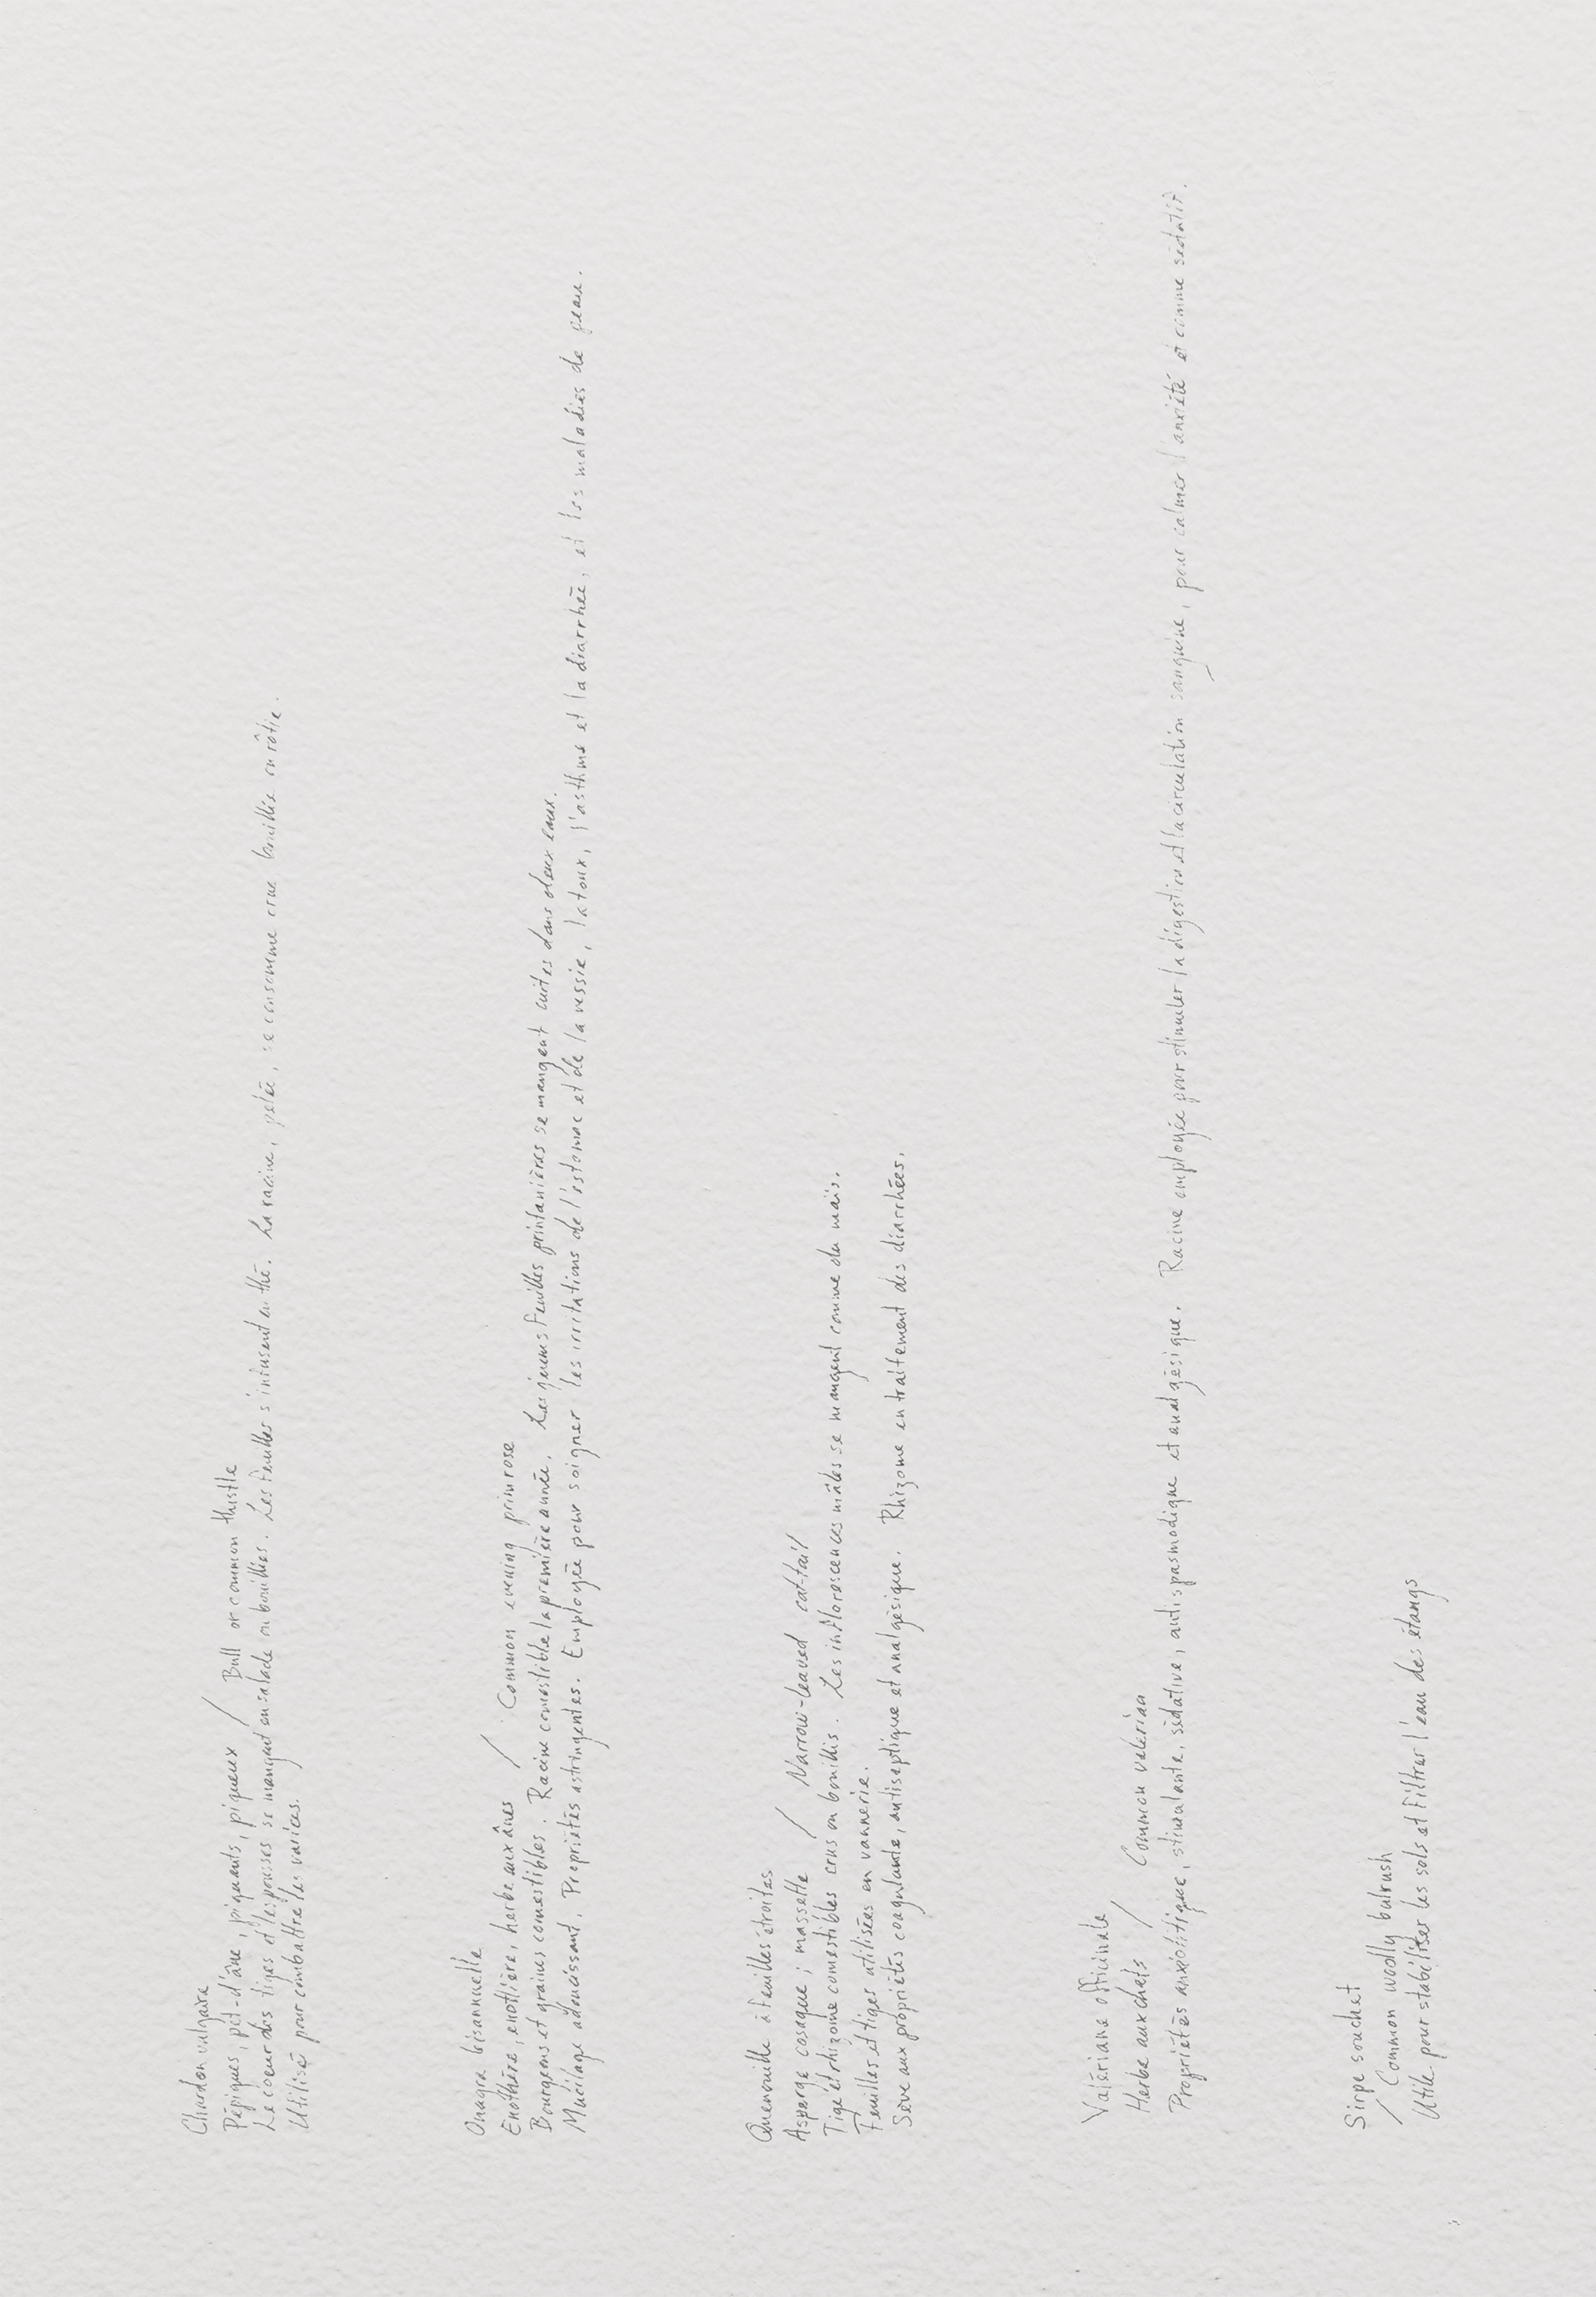 Chardon vulgaire
Pépiques, pet-d'âne, piquants, piqueux / Bull or common thistle
Le coeur des tiges et les pousses se mangent en salade ou bouillies. Les feuilles s'infusent en thé. La racine, pelée, se consomme crue bouillie ou rôtie.
Utilisé pour combattre les varices.
Onagre bisannuelle
Énothère, enotlière, herbe aux ânes / Common evening primrose
Bourgeons et graines comestibles. Racine comestible la première année. Les jeunes feuilles printanières se mangent cuites dans deux eaux.
Mucilage adoucissant. Propriétés astringentes. Employée pour soigner les irritations de l'estomac et de la vessie, la toux, l'asthme et la diarrhée, et les maladies de peau.
Quenouille à feuilles étroites
Asperge cosaque ; massette / Narrow-leaved cat-tail
Tige et rhizome comestibles crus ou bouillis. Les inflorescences mâles se mangent comme du maïs.
Feuilles et tiges utilisées en vannerie.
Sève aux propriétés coagulante, antiseptique et analgésique. Rhizome en traitement des diarrhées.
Valériane officinale
Herbe aux chats / Common valerian
Propriétés anxiolitique, stimulante, sédative, antispasmodique et analgésique. Racine employée pour stimuler la digestion et la circulation sanguine, pour calmer l'anxiété et comme sédatif.
Sirpe souchet
/ Common woolly bulrush
Utile pour stabiliser les sols et filtrer l'eau des étangs